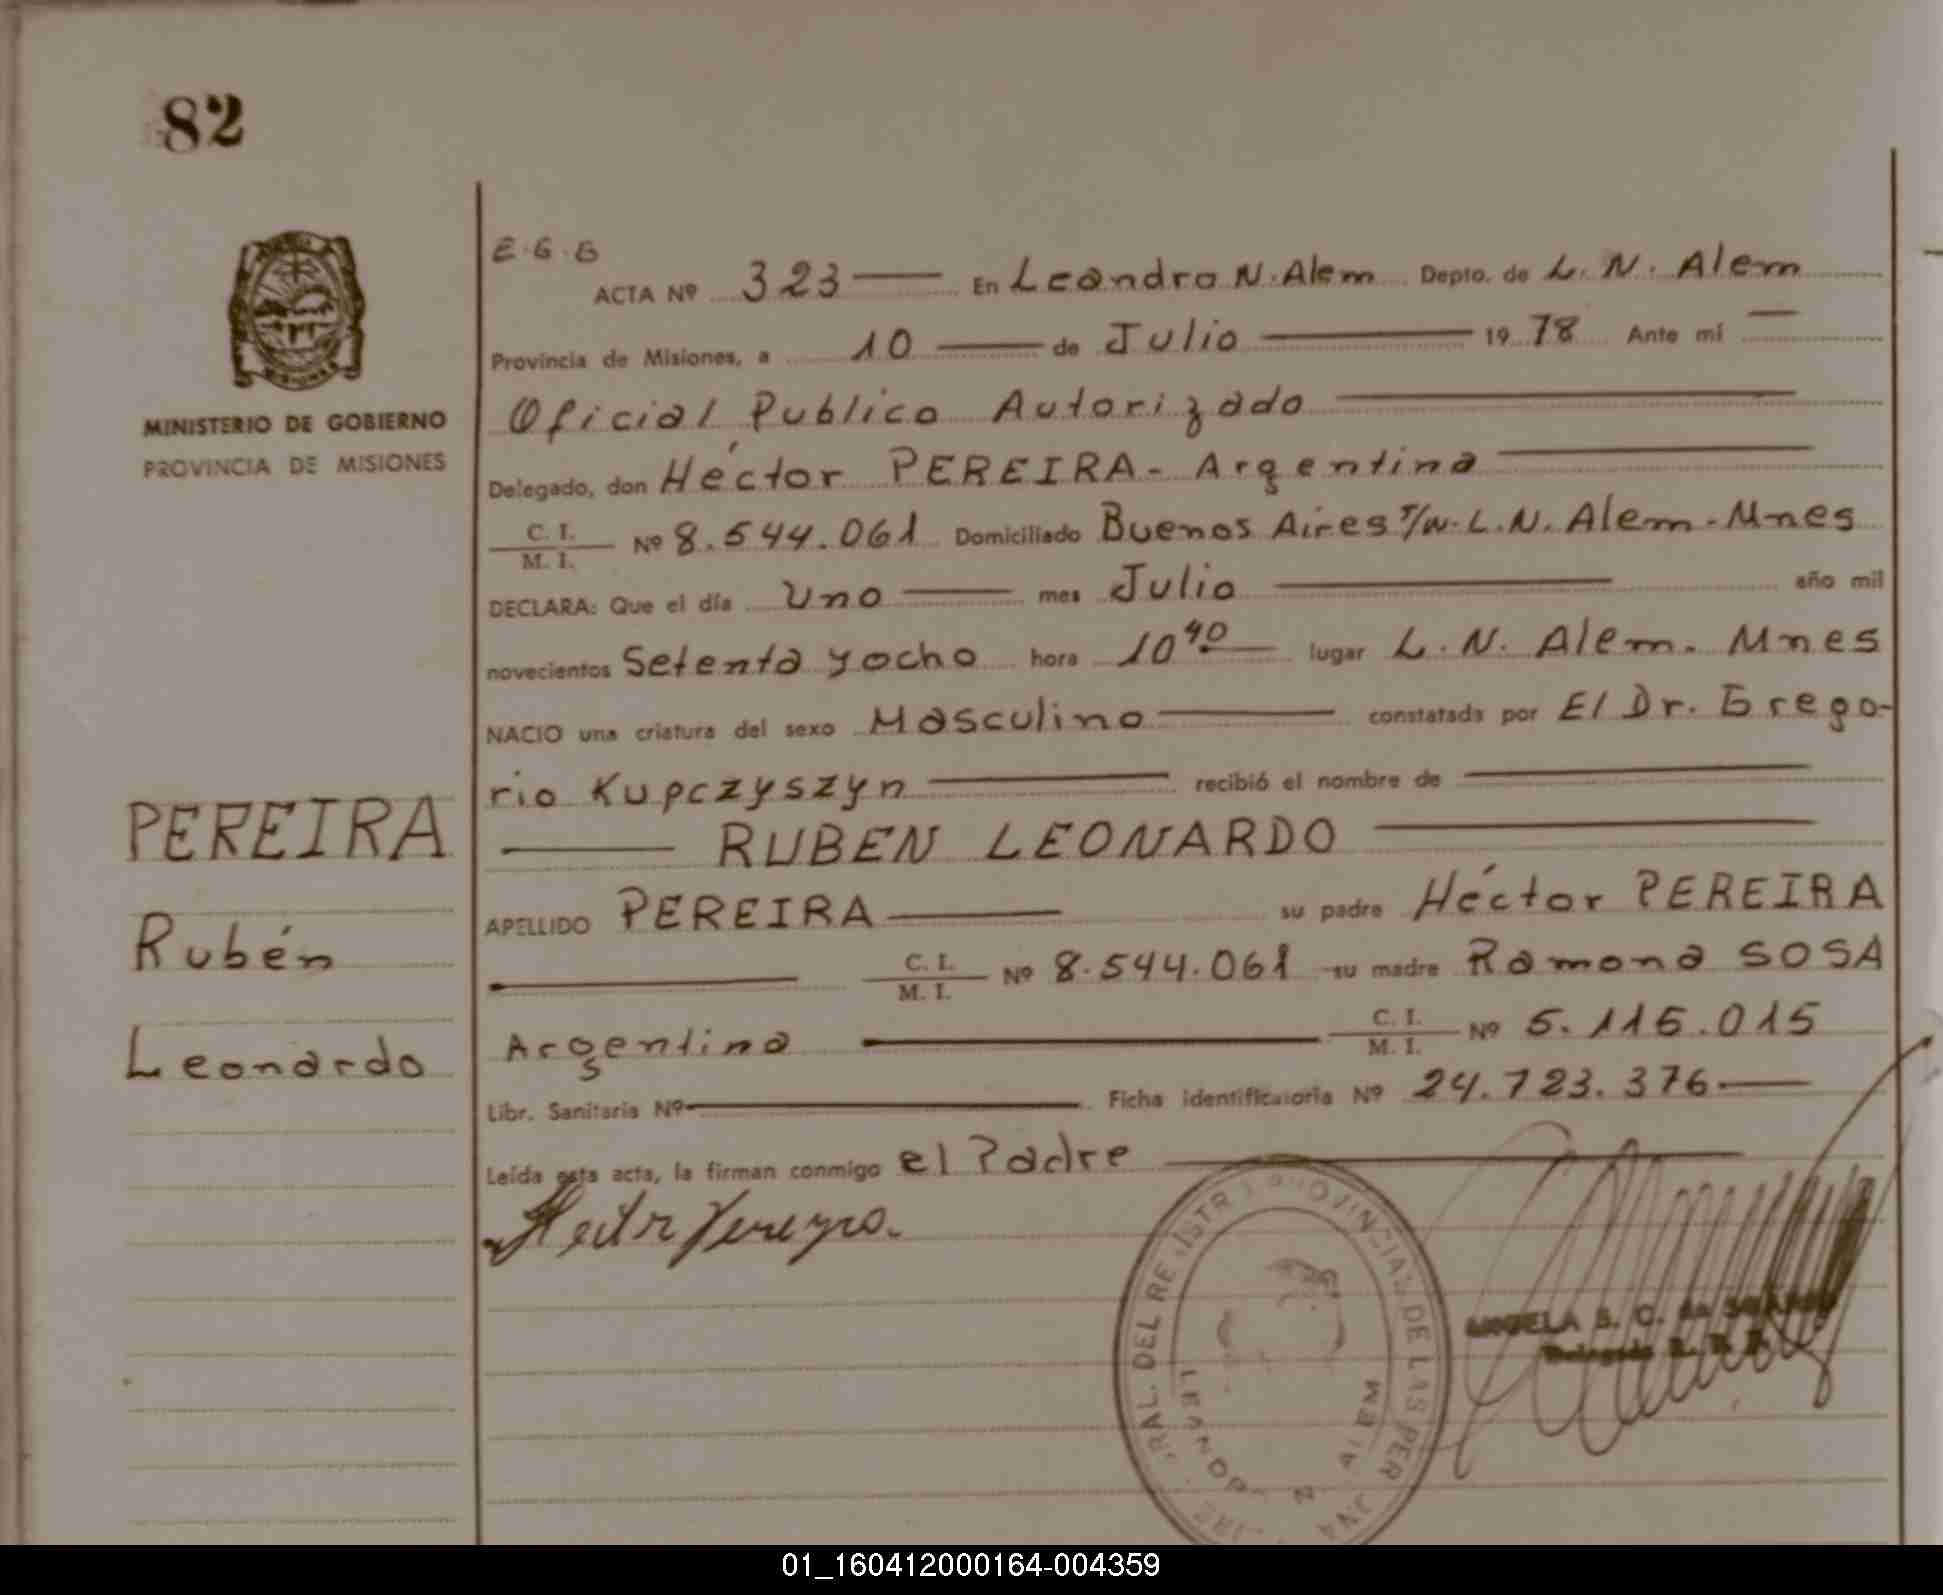 82
MINISTERIO DE GOBIERNO
PROVINCIA DE MISIONES
PEREIRA
Rubén
Leonardo
E.G.B
ACTA Nº 323 En Leandro N. Alem Depto. de L. N. Alem
Provincia de Misiones, a 10 de Julio 19 78 Ante mi
Oficial Publico Autorizado
Delegado, don Héctor PEREIRA - Argentina
C. I.
M. I. Nº 8.544.061 Domiciliado Buenos Aires s/n. L.N. Alem - Mnes
DECLARA: Que el día Uno mes Julio año mil
novecientos Setenta y ocho hora 10 40 lugar L. N. Alem. Mnes
NACIO una criatura del sexo Masculino constatada por El Dr. Grego-
rio Kupczyszyn recibió el nombre de
RUBEN LEONARDO
APELLIDO PEREIRA su padre Héctor PEREIRA
C. I.
M. I. Nº 8.544.061 su madre Ramona SOSA
Argentina C. I.
M. I. Nº 5.115.015
Libr. Sanitaria Nº Ficha identificatoria Nº 24.723.376.
Leída esta acta, la firman conmigo el Padre
Hector Pereyra.
PROVINCIAL DE LAS PER
RAL. DEL RE ISTR
ANGELA S. C. de
Delegada
01_160412000164-004359